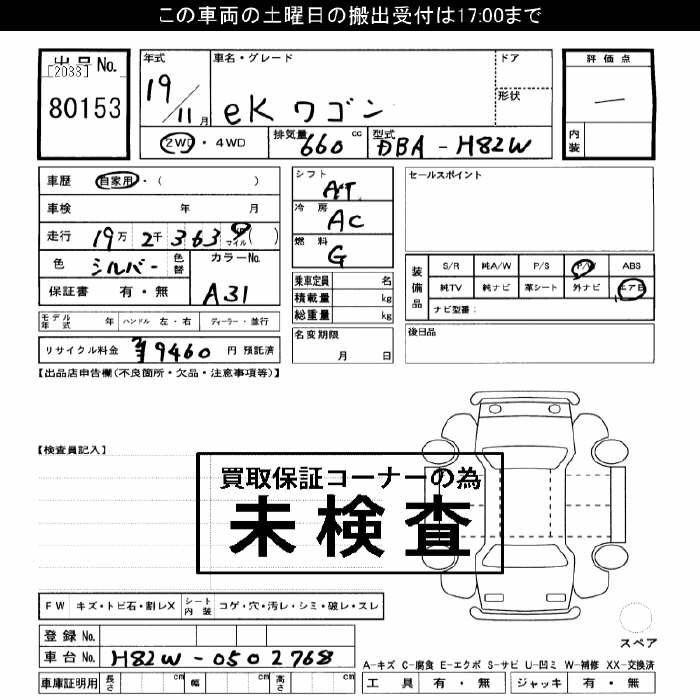 この車両の土曜日の搬出受付は17:00まで
出品No.
[2033]
80153
年式 車名・グレード ドア 評価点
19/11月 eK ワゴン 形状 —
2WD・4WD 排気量 660 cc 型式 DBA-H82W 内装
車歴 自家用・( ) シフト AT セールスポイント
車検 年 月 冷房 AC
走行 19万2千3639 マイル( ) 燃料 G
色 シルバー 色替 カラーNo. A31
保証書 有・無
乗車定員 名
積載量 kg
総重量 kg
装備品 S/R 純A/W P/S P/W ABS
純TV 純ナビ 革シート 外ナビ エアB
ナビ型番:
モデル年式 年 ハンドル 左・右 ディーラー・並行
名変期限 月 日
後日品
リサイクル料金 ¥9460 円 預託済
【出品店申告欄(不良箇所・欠品・注意事項等)】
【検査員記入】
買取保証コーナーの為
未検査
FW キズ・トビ石・割レX シート内装 コゲ・穴・汚レ・シミ・破レ・スレ
スペア
登録No.
車台No. H82W-0502768
A-キズ C-腐食 E-エクボ S-サビ U-凹ミ W-補修 XX-交換済
車庫証明用 長さ cm 幅 cm 高さ cm
工具 有・無 ジャッキ 有・無